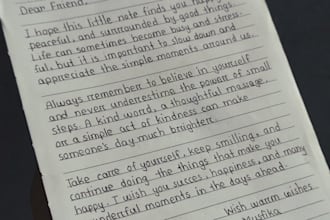 Dear Friend,
I hope this little note finds you happy,
peaceful, and surrounded by good things.
Life can sometimes become busy and stress-
ful, but it is important to slow down and
appreciate the simple moments around us.
Always remember to believe in yourself
and never underestime the power of small
steps. A kind word, a thoughtful massage,
or a simple act of kindness can make
someone's day much brighter.
Take care of yourself, keep smiling, and
continue doing the things that make you
happy. I wish you succes, happiness, and many
wonderful moments in the days ahead.
With warm wishes
Mustika